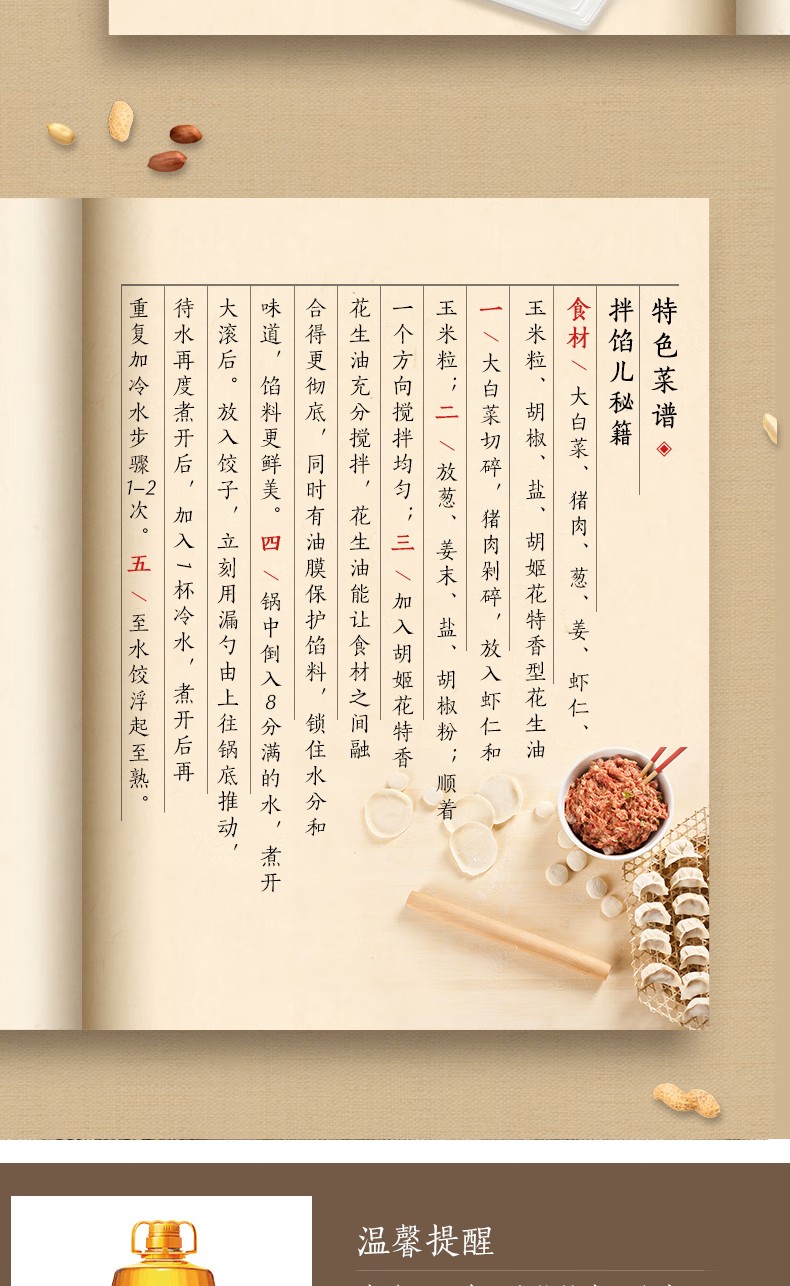 特色菜谱
拌馅儿秘籍
食材\大白菜、猪肉、葱、姜、虾仁、
玉米粒、胡椒、盐、胡姬花特香型花生油
一\大白菜切碎，猪肉剁碎，放入虾仁和
玉米粒；二\放葱、姜末、盐、胡椒粉；顺着
一个方向搅拌均匀；三\加入胡姬花特香
花生油充分搅拌，花生油能让食材之间融
合得更彻底，同时有油膜保护馅料，锁住水分和
味道，馅料更鲜美。四\锅中倒入8分满的水，煮开
大滚后。放入饺子，立刻用漏勺由上往锅底推动，
待水再度煮开后，加入1杯冷水，煮开后再
重复加冷水步骤1-2次。五\至水饺浮起至熟。
温馨提醒